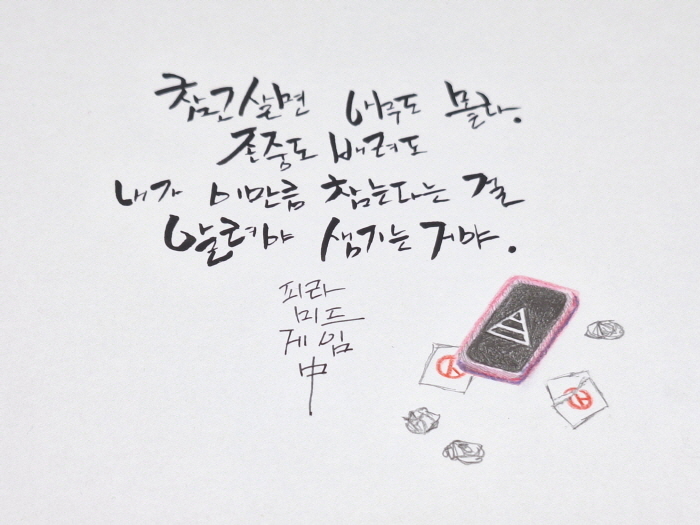 참고살면 아무도 몰라.
존중도 배려도
내가 이만큼 참는다는 걸
알려야 생기는 거야.
피라
미드
게임
中